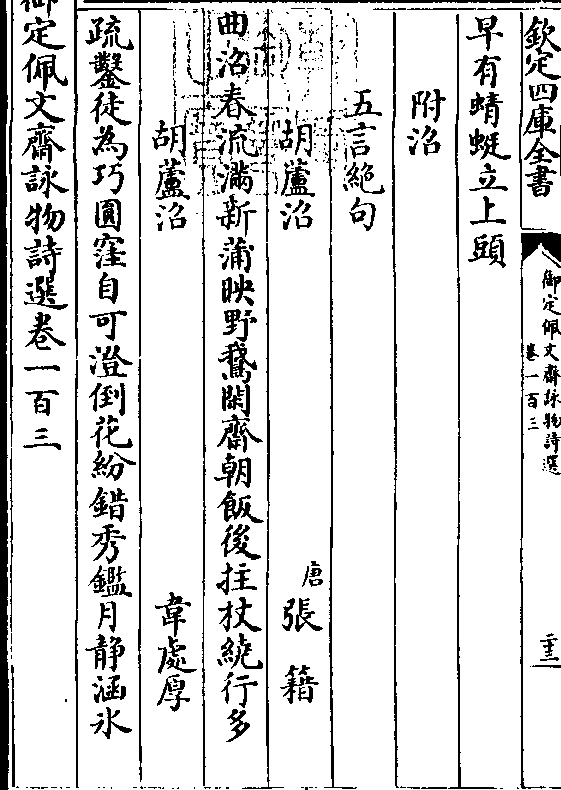 欽定四庫全書
御定佩文齋詠物詩選
卷一百三
早有蜻蜓立上頭
附沼
五言絶句
胡蘆沼
唐張籍
曲沼春流滿新蒲映野鵞閑齋朝飯後拄杖繞行多
胡蘆沼
韋處厚
疏鑿徒為巧圓窪自可澄倒花紛錯秀鑑月静涵氷
御定佩文齋詠物詩選卷一百三